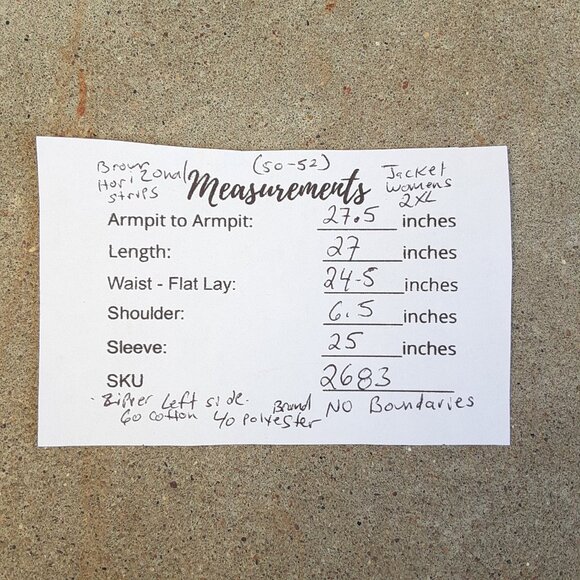 Brown Horizonal strips
(50-52)
Jacket womens 2XL
Measurements
Armpit to Armpit: 27.5 inches
Length: 27 inches
Waist - Flat Lay: 24.5 inches
Shoulder: 6.5 inches
Sleeve: 25 inches
SKU 2683
Zipper left side.
60 cotton 40 polyester
Brand NO Boundaries